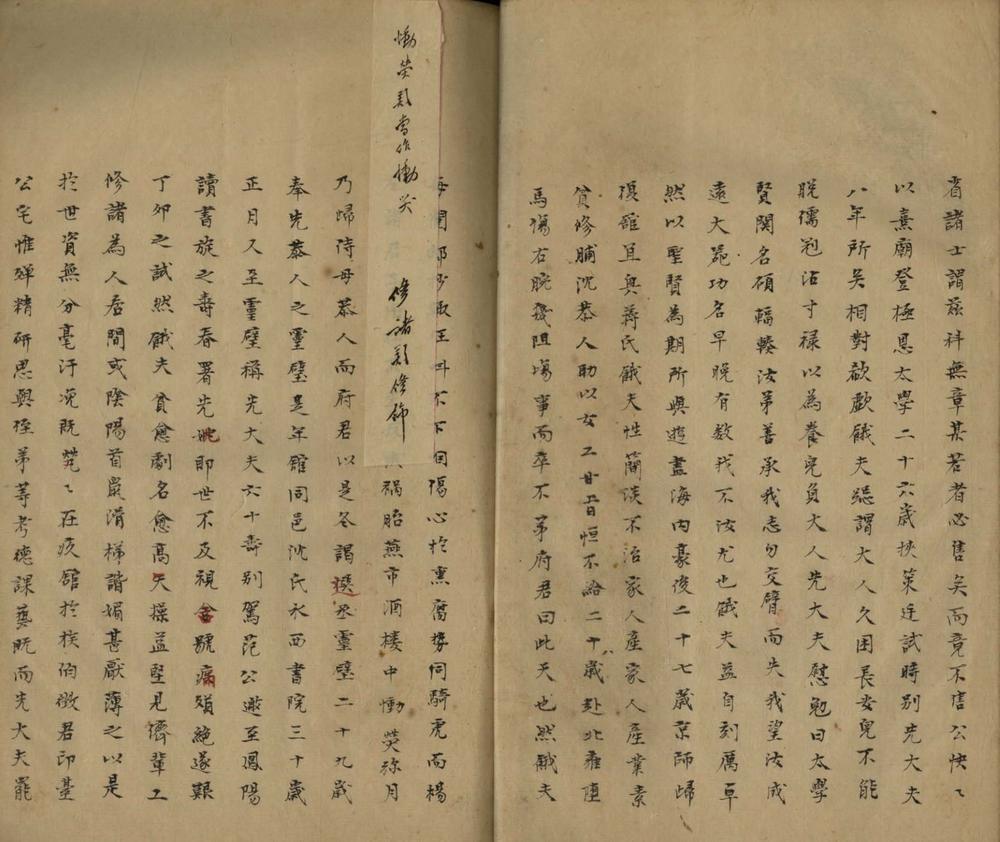 省諸士謂茲科無章某若者必售矣而竟不售公怏〻
以熹廟登極恩太學二十六歲挾策廷試時別先大夫
八年所矣相對歔欷餓夫跽謂大人久困長安兒不能
脫儒冠沾寸祿以為養兒負大人先大夫慰勉曰太學
賢關名碩輻輳汝第善承我志勿交臂而失我望汝成
遠大范功名早晚有数我不汝尤也餓夫益自刻厲卓
然以聖賢為期所與遊盡海内豪俊二十七歲京師歸
復舘且與蔣氏餓夫性蕑淡不治家人產家人產業素
貧修脯沈恭人助以女工甘旨恒不給二十八歲赴北雍墮
馬傷右腕幾阻塲事而卒不第府君曰此天也然餓夫
每閱邸抄取至 不下 傷心於熏腐勢同騎虎而楊
禍胎燕市酒楼中慟熒弥月
乃歸侍母恭人而府君以是冬謁選丞靈璧二十九歲
奉先恭人之靈璧是年舘同邑沈氏水西書院三十歲
正月又至靈璧稱先大夫六十壽別駕范公邀至鳳陽
讀書旋之壽春署先妣即世不及視含號痛頻絶遂艱
丁夘之試然餓夫貧愈劇名愈髙矢操益堅見儕輩工
修諸為人居間或陰陽首鼠滑梯諧媚甚厭薄之以是
於世資無分毫汙况既煢〻在疚舘於族伯徴君印臺
公宅惟殫精研思與侄弟等考德課藝既而先大夫罷
慟榮疑當作慟哭
修諸疑修飾